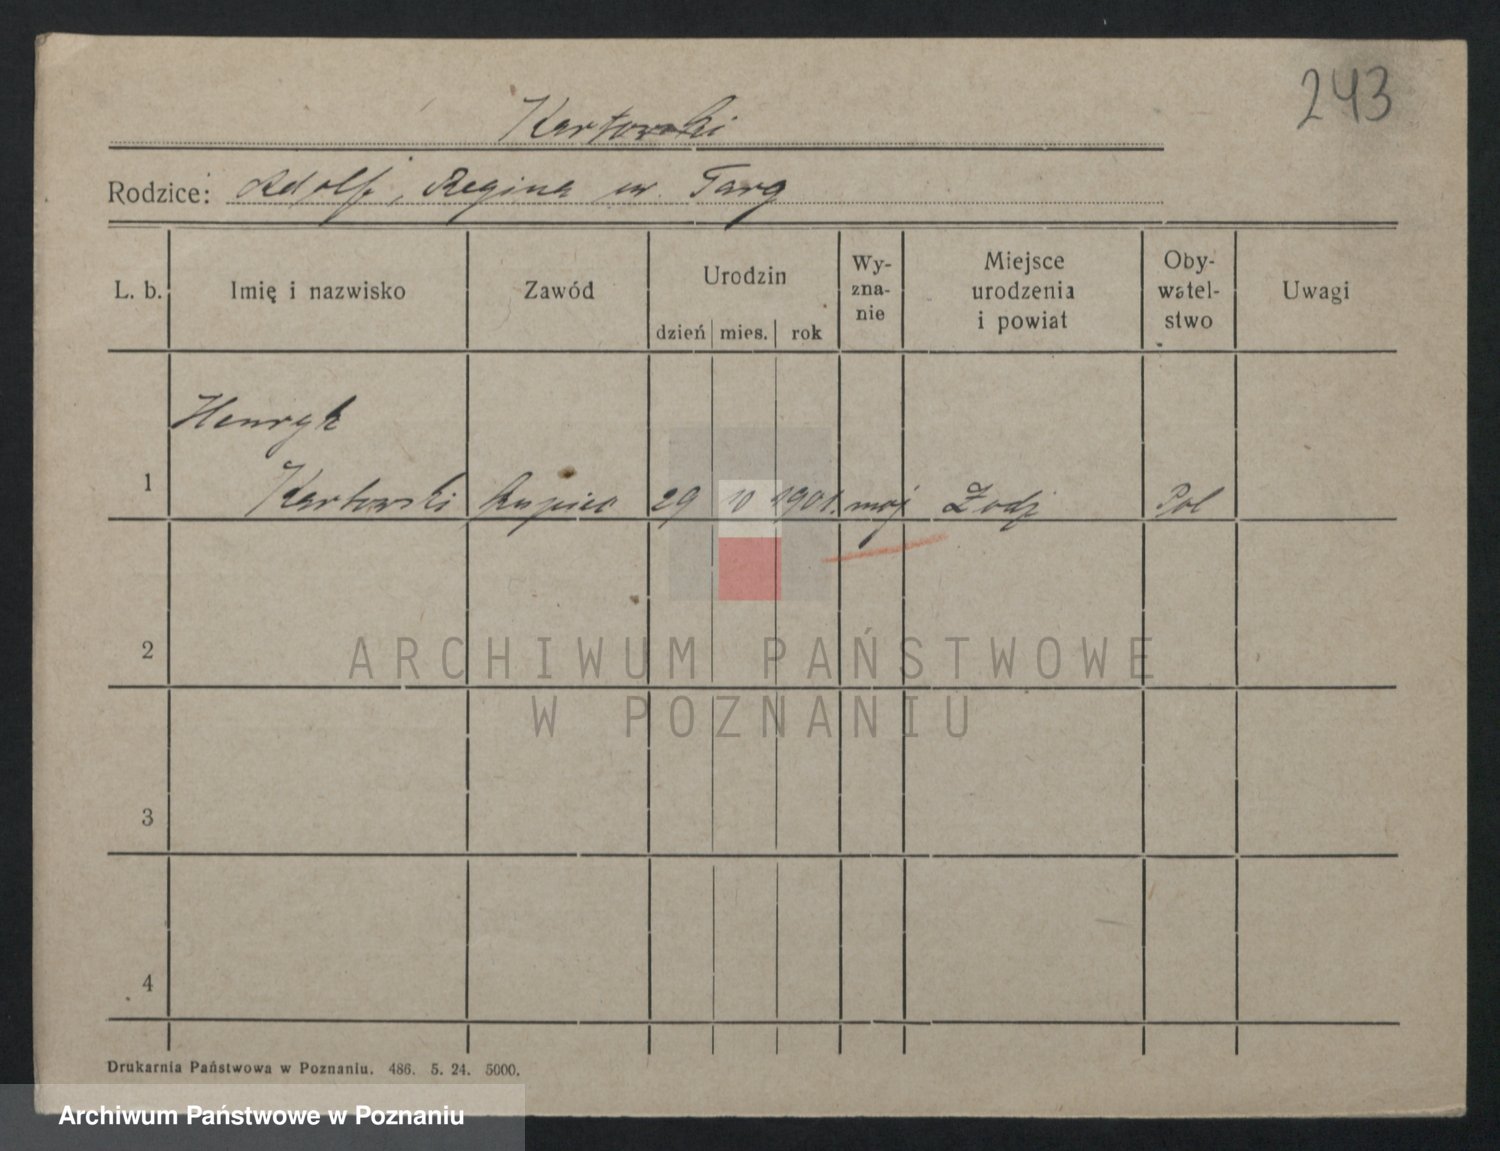 243
Kartowski
Rodzice: Adolf, Regina ur. Targ
L. b. Imię i nazwisko Zawód Urodzin dzień mies. rok Wy-zna-nie Miejsce urodzenia i powiat Oby-watel-stwo Uwagi
Henryk
1 Kartowski kupiec 29 10 1901. moj Łodź Pol
2
ARCHIWUM PAŃSTWOWE
W POZNANIU
3
4
Drukarnia Państwowa w Poznaniu. 486. 5. 24. 5000.
Archiwum Państwowe w Poznaniu